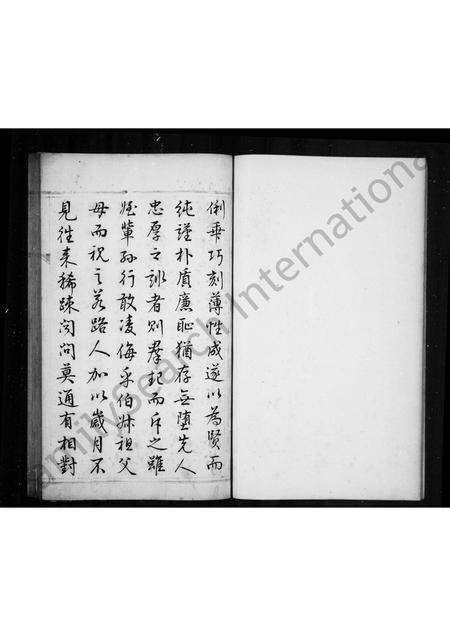 俐乖巧刻薄性成遂以為賢而
純謹朴質廉恥猶存無墮先人
忠厚之訓者則羣起而斥之雖
姪輩孫行敢凌侮乎伯叔祖父
母而視之若路人加以歲月不
見往来稀疎问問莫通有相對
FamilySearch International